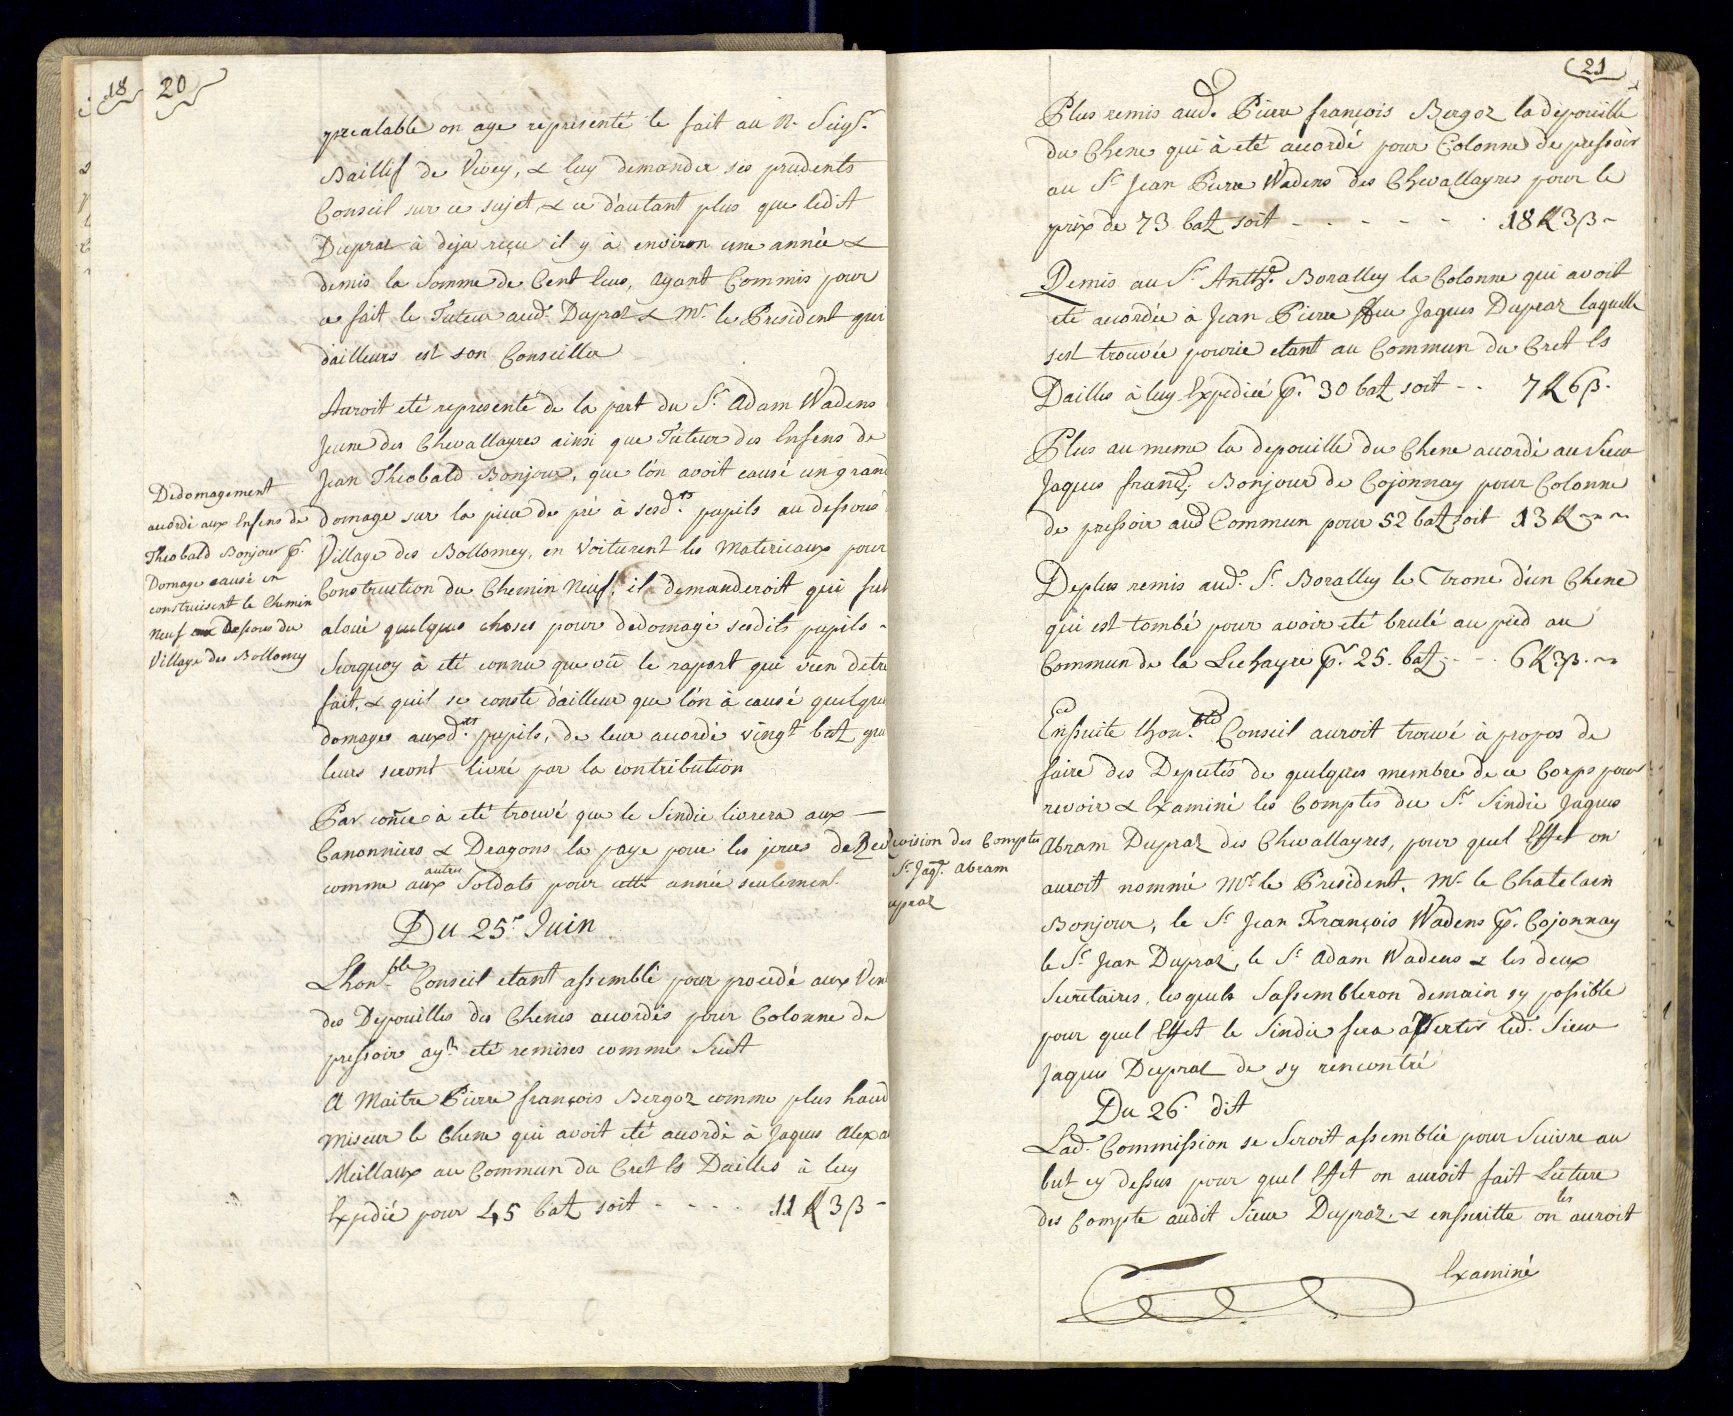 18
20
prealable on aye representé le fait au N. Seigr.
Baillif de Vevey, & luy demander ses prudents
Conseil sur ce sujet, & ce d'autant plus que ledit
Dupraz à deja reçu il y à environ une année &
demis la Somme de Cent Ecus, ayant Commis pour
ce fait le Tuteur aud. Dupraz & Mr. le President qui
d'ailleurs est son Conseiller
Auroit eté representé de la part du Sr. Adam Wadens
Jeune des Chevallayres ainsi que Tuteur des Enfens de
Jean Theobald Bonjour, que l'on avoit causé un grand
Dedomagement
accordé aux Enfens de
Theobald Bonjour pr.
Domage causé en
construisent le Chemin
Neuf aux Dessous du
Village des Bollomey
domage sur la piece de pré à sesdts. pupils au dessous
Village des Bollomey, en Voiturent les Matericaux pour
Construction du Chemin Neuf; il demanderoit qui fut
aloué quelques choses pour dedomagé sesdits pupils -
Surquoy à eté connu que vû le raport qui vien detre
fait, & quil se conste d'ailleur que l'on à causé quelque
domages auxdts. pupils, de leur accordé vingt batz que
leurs seront livré par la contribution
Par conce à eté trouvé que le Sindic livrera aux
Canonniers & Dragons la paye pour les jours de Rev
comme aux autre Soldats pour cette année seulement.
Du 25e. Juin
Lhonble. Conseil etant assemblé pour procedé aux Ven
des Depouilles des Chenes accordés pour Colonne de
pressoir ayt. eté remises comme Suit
A Maitre Pierre françois Bergoz comme plus haud
miseur le Chene qui avoit eté accordé à Jaques Alexa
Meillaux au Commun du Cret Es Dailles à luy
Expedié pour 45 batz soit - - - - 11 ₰ 3 β -
21
Plus remis aud. Pierre françois Bergoz la depouille
du Chene qui à eté accordé pour Colonne de pressoir
au Sr. Jean Pierre Wadens des Chevallayres pour le
prix de 73 batz soit - - - - - - 18 ₰ 3 β -
Remis au Sr. Anthe. Boralley la Colonne qui avoit
eté accordée à Jean Pierre ffeu Jaques Dupraz laquelle
sest trouvée pourrie etant au Commun du Cret Es
Dailles à luy Expediéé pr. 30 batz soit - - 7 ₰ 6 β -
Plus au meme la depouille du Chene accordé au Sieur
Jaques franç. Bonjour de Cojonnay pour Colonne
de pressoir aud Commun pour 52 batz soit 13 ₰ - -
Deplus remis aud. Sr. Boralley le Tronc d'un Chene
qui est tombé pour avoir eté brulé au pied au
Commun de la Lechayre pr. 25. batz - - 6 ₰ 3 β -
Ensuite lhonble. Conseil auroit trouvé à propos de
faire des Deputés de quelques membre de ce Corps pour
revoir & Examiné les Comptes du Sr. Sindic Jaques
evision des Comptes
Sr. Jaqs. Abram
upraz
Abram Dupraz des Chevallayres, pour quel Effet on
auroit nommé Mr. le President, Mr. le Chatelain
Bonjour, le Sr. Jean François Wadens pr. Cojonnay
le Sr. Jean Dupraz, le Sr. Adam Wadens & les deux
Secretaires, lesquels Sassembleron demain sy possible
pour quel Effet le Sindic fera avertir led. Sieur
Jaques Dupraz de sy rencontré
Du 26. dit
Lad. Commission se Seroit assemblée pour Suivre au
but cy dessus pour quel Effet on auroit fait Lecture
des Compte audit Sieur Dupraz. & ensuitte on les auroit
Examiné